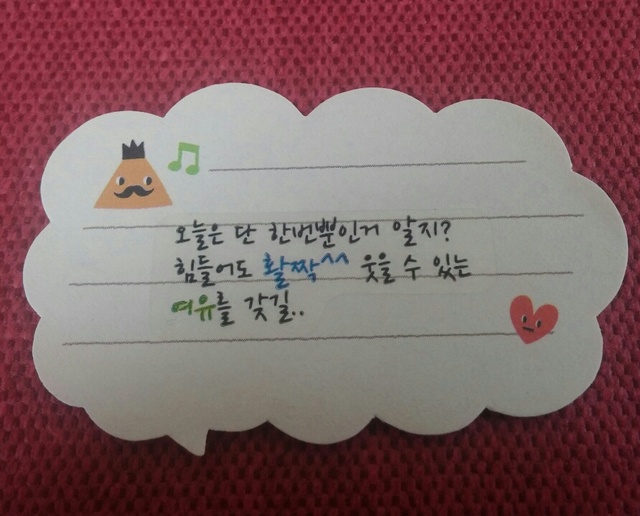 오늘은 단 한번뿐인거 알지?
힘들어도 활짝^^ 웃을 수 있는
여유를 갖길..